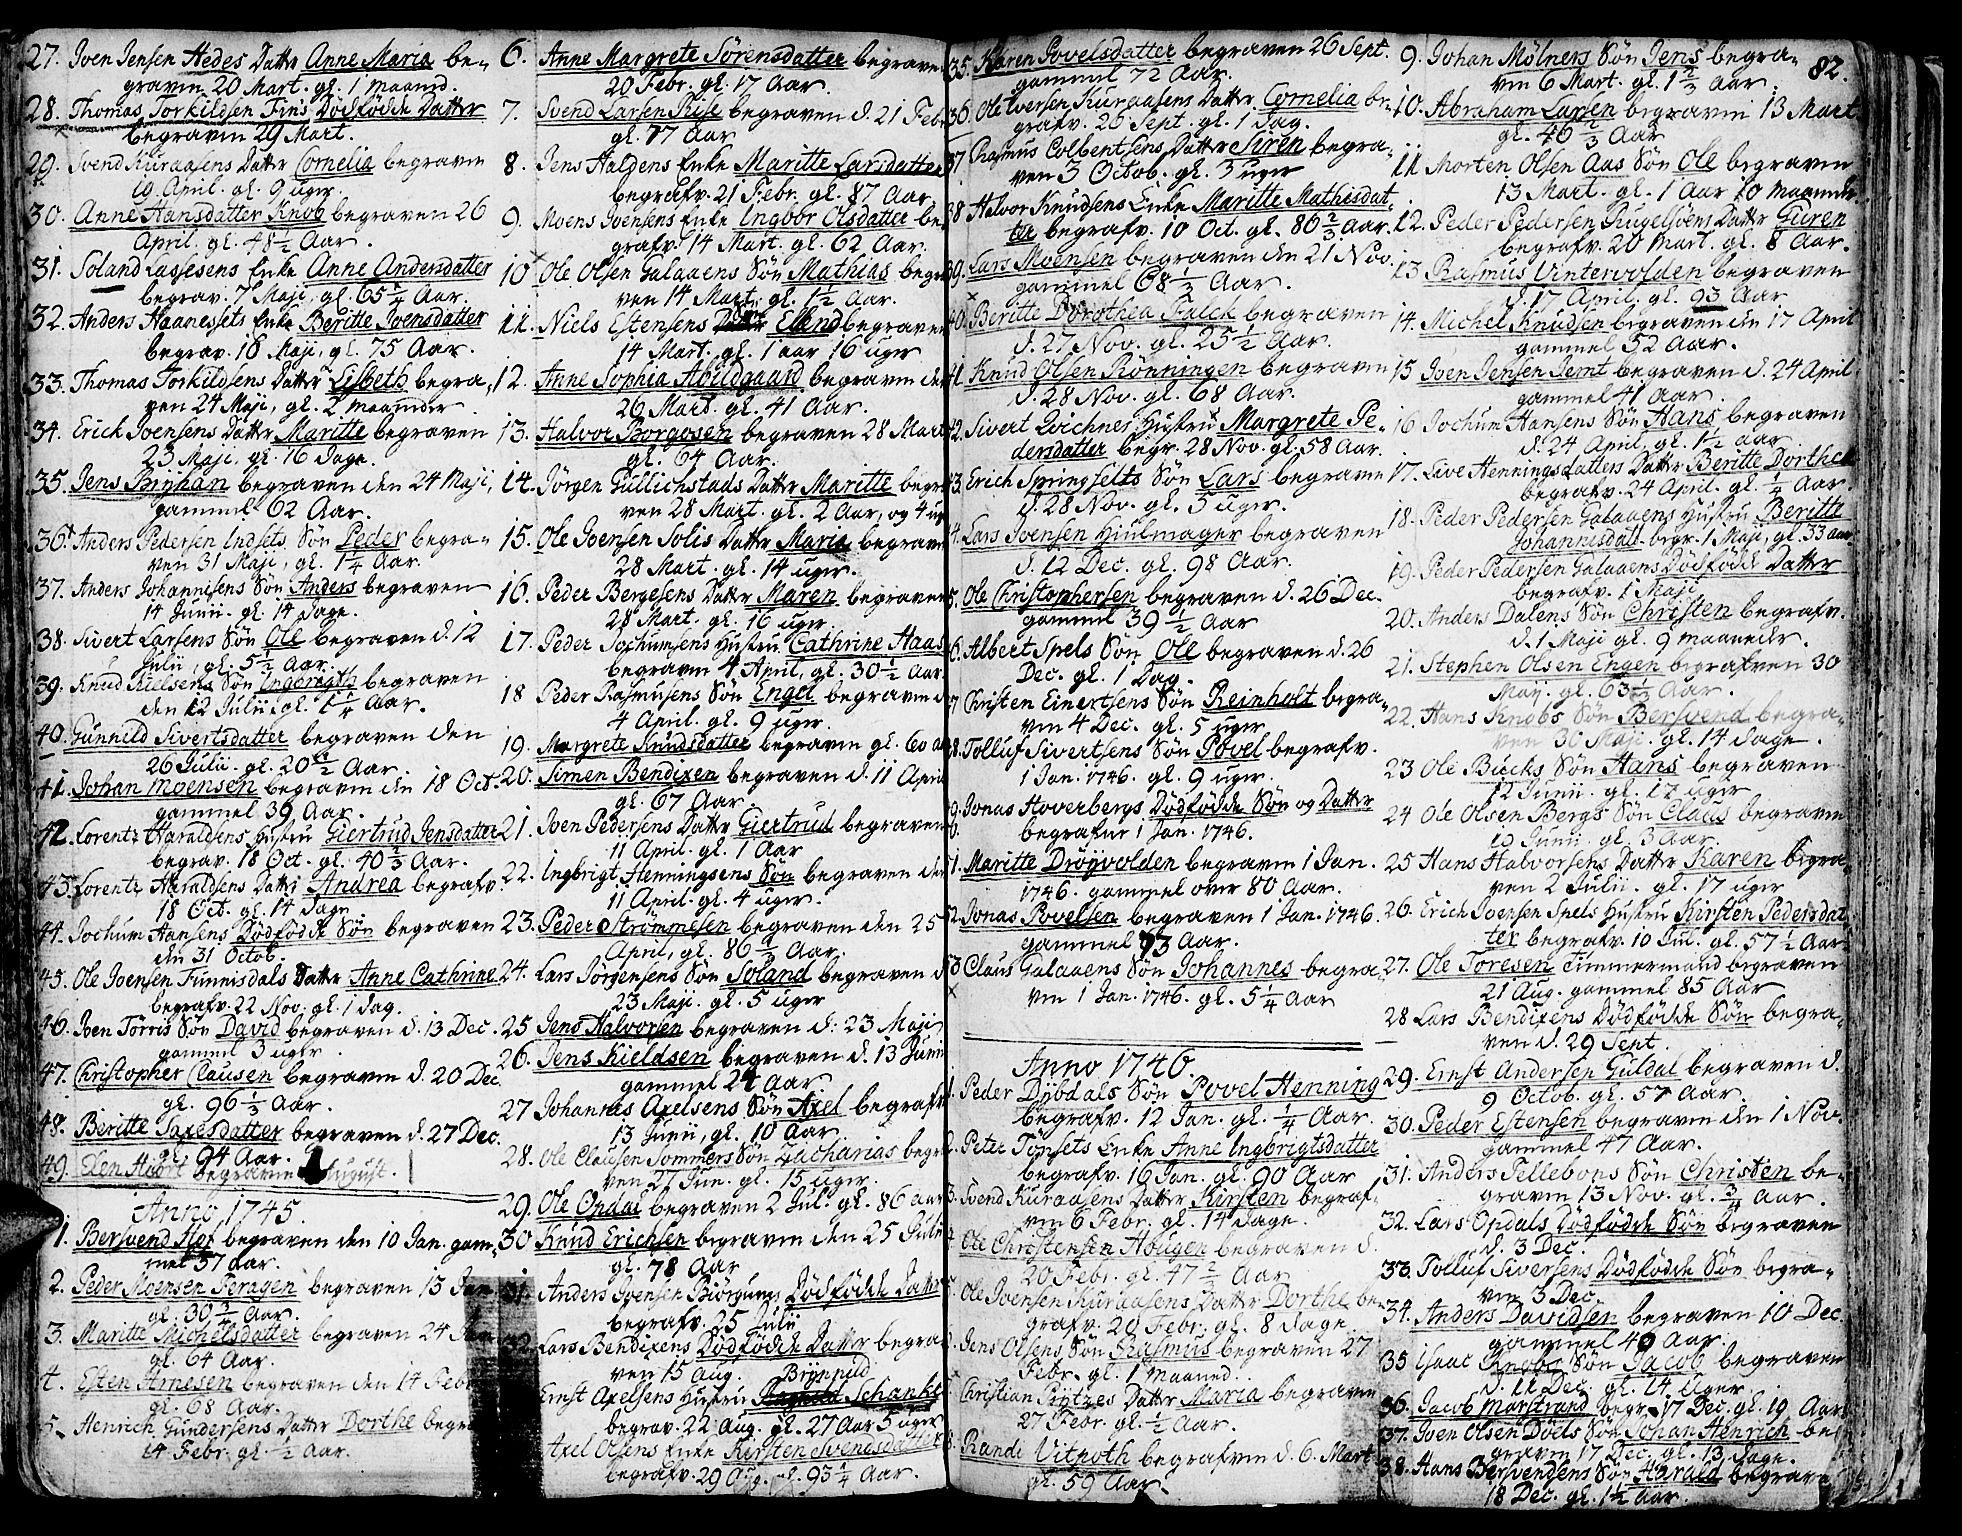 27. Iven Jensen Hedes Datter Anne Maria be-
graven 20 Mart. gl. 1 maaned.
28. Thomas Torkildsen Fins Dødfødde Datter
begraven 29 Mart.
29. Svend Kuraasens Datter Cornelia begraven
19 April. gl. 9 uger.
30. Anne Hansdatter Knob begraven 26
April. gl. 48 1/2 Aar.
31. Soland Lassesens Enke Anne Andersdatter
begrav. 7 Maji, gl. 65 1/4 Aar.
32. Anders Haanesets Enke Beritte Ivensdatter
begrav. 18 Maji, gl. 75 Aar.
33. Thomas Torkildsens Datter Lisbeth begra-
ven 24 Maji, gl. 2 maaneder
34. Erick Ivensens Datter Maritte begraven
23 Maji, gl. 16 Dage.
35. Jens Brÿhan begraven den 24 Maji,
gammel 62 Aar.
36. Anders Pedersen Indsets Søn Peder begra-
ven 31 Maji, gl. 1 1/4 Aar.
37. Anders Johannesens Søn Anders begraven
14 Junii. gl. 14 Dage.
38. Sivert Larsens Søn Ole begraven d. 12
Julii, gl. 5 1/2 Aar.
39. Knud Kielsens Søn Ingbrigth begraven
den 12 Julii, gl. 1 1/4 Aar.
40. Gunnild Sivertsdatter begraven den
26 Julii. gl. 20 1/2 Aar.
41. Johan Moensen begraven den 18 Oct.
gammel 39 Aar.
42. Lorentz Haraldsens Hustru Giertrud Jensdatter
begrav. 18 Oct. gl. 40 2/3 Aar.
43. Lorentz Haraldsens Datter Andrea begrafv.
18 Oct. gl. 14 Dage
44. Jochum Hansens Dødfødde Søn begraven
den 31 Octob.
45. Ole Ivensen Funnisdals Datter Anne Cathrine
begrafv. 22 Nov. gl. 1 dag.
46. Iven Torris Søn David begraven d. 13 Dec.
gammel 3 uger.
47. Christopher Clausen begraven d. 20 Dec
gl. 96 1/3 Aar.
48. Beritte Saxesdatter begraven d. 27 Dec.
gl. 94 Aar.
49. Elen Hiort begraven August.
Anno 1745.
1. Bersvend Hof begraven den 10 Jan. gam-
mel 37 aar.
2. Peder Moensen Feragen begraven 13 Jan
gl. 30 3/4 Aar.
3. Maritte Michelsdatter begraven 24 Jan
gl. 64 Aar.
4. Esten Arnesen begraven den 14 Febr
gl. 68 Aar.
5. Henrich Gundersens Datter Dorthe begra
14 Febr. gl. 1/2 Aar.
6. Anne Margrete Sørensdatter begraven
20 Febr. gl. 17 Aar.
7. Svend Larsen Riise begraven d. 21 Febr
gl. 77 Aar
8. Jens Haldens Enke Maritte Larsdatter
begrafv. 21 Febr. gl. 87 Aar
9. Moens Ivensens Enke Ingbor Olsdatter be-
grafv. 14 Mart. gl. 62 Aar.
10 Ole Olsen Galaaens Søn Mathias begra
ven 14 Mart. gl. 1 1/2 Aar.
11. Niels Estensens Søn Ellend begraven
14 Mart. gl. 1 aar 16 uger
12. Anne Sophia Abildgaard begraven den
26 Mart. gl. 41 Aar.
13. Halvor Borgosen begraven 28 Mart
gl. 64 Aar.
14. Jørgen Gullichstads Datter Maritte begra
ven 28 Mart. gl. 2 Aar, og 4 ug
15. Ole Ivensen Solis Datter Maria begraven
28 Mart. gl. 14 uger.
16. Peder Bergesens Datter Maren begraven
28 Mart. gl. 16 uger.
17. Peder Jochumsens Hustru Cathrine Haas
begraven 4 April, gl. 30 1/2 Aar
18 Peder Rasmusens Søn Engel begraven d
4 April. gl. 9 uger.
19. Margrete Knudsdatter begraven gl. 60 aa
20. Simen Bendixen begraven d. 11 April
gl. 67 Aar.
21. Iven Pedersens Datter Giertrud begraven
11 April. gl. 1 Aar
22. Ingbrigt Henningsens Søn begraven den
11 April. gl. 4 uger.
23. Peder Strømmesen begraven den 25
April, gl. 86 1/2 Aar.
24. Lars Jørgensens Søn Soland begraven d
23 Maji. gl. 5 uger
25 Jens Halvorsen begraven d. 23 Maji
26. Jens Kieldsen begraven d. 13 Junii
gammel 24 Aar.
27 Johannes Axelsens Søn Axel begrafv
13 Junii, gl. 10 Aar
28. Ole Clausen Sommers Søn Zacharias begra
ven 27 Jun. gl. 15 uger.
29. Ole Opdal begraven 2 Jul. gl. 86 aar
30 Knud Erichsen begraven den 25 Julii
gl. 78 Aar
31. Anders Ivensen Biørgums Dødfødde Datter
begrafv. 25 Julii
32. Lars Bendixens Dødfødde Datter begra
ven 15 aug. Brÿnnild
Ernst Axelsens Hustru Schanke
begrav. 22 aug. gl. 27 Aar 5 uger
Axel Olsens Enke Kirsten Svenesdatter
begrafv. 29 Aug. gl. 93 1/4 Aar.
35. Karen Povelsdatter begraven 26 Sept.
gammel 72 Aar.
36. Ole Iversen Kuraasens Datter Cornelia be-
grafv. 26 Sept. gl. 1 Dag.
37 Rasmus Colbentsens Datter Siren begra-
ven 3 Octob. gl. 3 uger
38 Halvor Knudsens Enke Maritte Mathisdat-
ter begrafv. 10 Oct. gl. 80 2/3 Aar.
39. Lars Moensen begraven den 21 Nov.
gammel 68 1/2 Aar.
40. Beritte Dorothea Falck begraven
d. 27 Nov. gl. 25 1/2 Aar.
41 Knud Olsen Rønningen begraven
d. 28 Nov. gl. 68 Aar.
42. Sivert Loichners Hustru Margrete Pe-
dersdatter begr. 28 Nov. gl. 58 Aar.
43. Erich Springfelts Søn Lars begraven
d. 28 Nov. gl. 3 uger.
4. Lars Ivensen Hiulmager begraven
d. 12 Dec. gl. 98 Aar.
5. Ole Christophersen begraven d. 26 Dec.
gammel 39 1/2 Aar
6. Albert Spels Søn Ole begraven d. 26
Dec. gl. 1 Dag.
7 Christen Einertsens Søn Reinholt begra-
ven 4 Dec. gl. 5 uger
8. Tolluf Sivertsens Søn Povel begrafv.
1 Jan. 1746. gl. 9 uger.
9. Jonas Hoverbergs Dødfødde Søn og Datter
begrafne 1 Jan. 1746.
1. Maritte Drøÿvolden begraven 1 Jan.
1746. gammel over 80 Aar.
2. Jonas Povelsen begraven 1 Jan. 1746.
gammel 73 Aar.
3 Claus Galaaens Søn Johannes begra-
ven 1 Jan. 1746. gl. 5 1/4 Aar
Anno 1746.
1. Peder Dÿbdals Søn Povel Henning
begrafv. 12 Jan. gl. 1/4 Aar.
2. Peter Tønsets Enke Anne Ingbrigtsdatter
begrafv. 16 Jan. gl. 90 Aar
3. Svend Kuraasens Datter Kirsten begraf-
ven 6 Febr. gl. 14 Dage.
Ole Christensen Hougen begraven d.
20 Febr. gl. 47 2/2 Aar
Ole Ivensen Kuraasens Datter Dorthe be-
grafv. 20 Febr. gl. 8 dage
Jens Olsens Søn Rasmus begraven 27
Febr. gl. 1 maaned.
Christian Prÿtzes Datter Maria begraven
27 Febr. gl. 1/2 Aar.
8. Randi Vitpoth begrafven d. 6. Mart
gl. 59 Aar.
82.
9. Johan Mølners Søn Jens begra-
ven 6 Mart. gl. 1 2/3 Aar.
10. Abraham Larsen begraven 13 Mart
gl. 46 2/3 Aar
11 Morten Olsen Aas Søn Ole begraven
13 Mart. gl. 1 Aar 10 maaneder
12. Peder Pedersen Rugelsøens Datter Guren
begrafv. 20 Mart. gl. 8 Aar.
13 Rasmus Vintervolden begraven
d. 17 April. gl. 93 Aar
14. Michel Knudsen begraven den 17 April
gammel 52 Aar.
15 Iven Jensen Jemt begraven d. 24 April
gammel 41 aar.
16 Jochum Hansens Søn Hans begraven
d. 24 April, gl. 1 1/2 aar
17. Live Henningsdatters Datter Beritte Dorthea
begrafv. 24 April. gl. 1/4 Aar.
18. Peder Pedersen Galaaens Hustru Beritte
Johannisdat. begr. 1 Maji, gl. 33 aar
19. Peder Pedersen Galaaens Dødfødde Datter
begrafv. 1 Maji
20. Anders Dalens Søn Christen begrafv.
d. 1 Maji gl. 9 maaneder.
21. Stephen Olsen Engen begrafven 30
Maij. gl. 63 1/2 Aar.
22. Hans Knobs Søn Bersvend begra-
ven 30 Maji. gl. 14 Dage.
23 Ole Bucks Søn Hans begraven
12 Junii. gl. 17 uger
24 Ole Olsen Bergs Søn Claus begraven
19 Junii. gl. 3 Aar.
25 Hans Halvorsens Datter Karen begra-
ven 2 Julii. gl. 17 uger
26. Erich Ivensen Spels Hustru Kirsten Pedersdat
ter begrafv. 10 Jul. gl. 57 1/2 Aar
27. Ole Toresen Timmermand begraven
21 Aug. gammel 85 Aar
28 Lars Bendixens Dødfødde Søn begra-
ven d. 29 Sept.
29. Ernst Andersen Guldal begraven d.
9 Octob. gl. 57 Aar.
30. Peder Estensen begraven den 1 Nov.
gammel 47 Aar.
31. Anders Tellebons Søn Christen be-
graven 13 Nov. gl. 3/4 Aar.
32. Lars Opdals Dødfødde Søn begraven
d. 3 Dec.
33. Tolluf Siversens Dødfødde Søn begra-
ven 3 Dec.
34. Anders Davidsen begraven 10 Dec
gammel 40 Aar.
35 Isaac Knobs Søn Jacob begraven
d. 11 Dec. gl. 14 Uger
36. Jacob Marstrand begr. 17 Dec. gl. 19 Aar
37. Iven Olsen Døels Søn Johan Henrich be-
graven 17 Dec. gl. 13 Dage.
38. Hans Bersvendsens Søn Harald begrave
18 Dec. gl. 1 1/2 Aar.